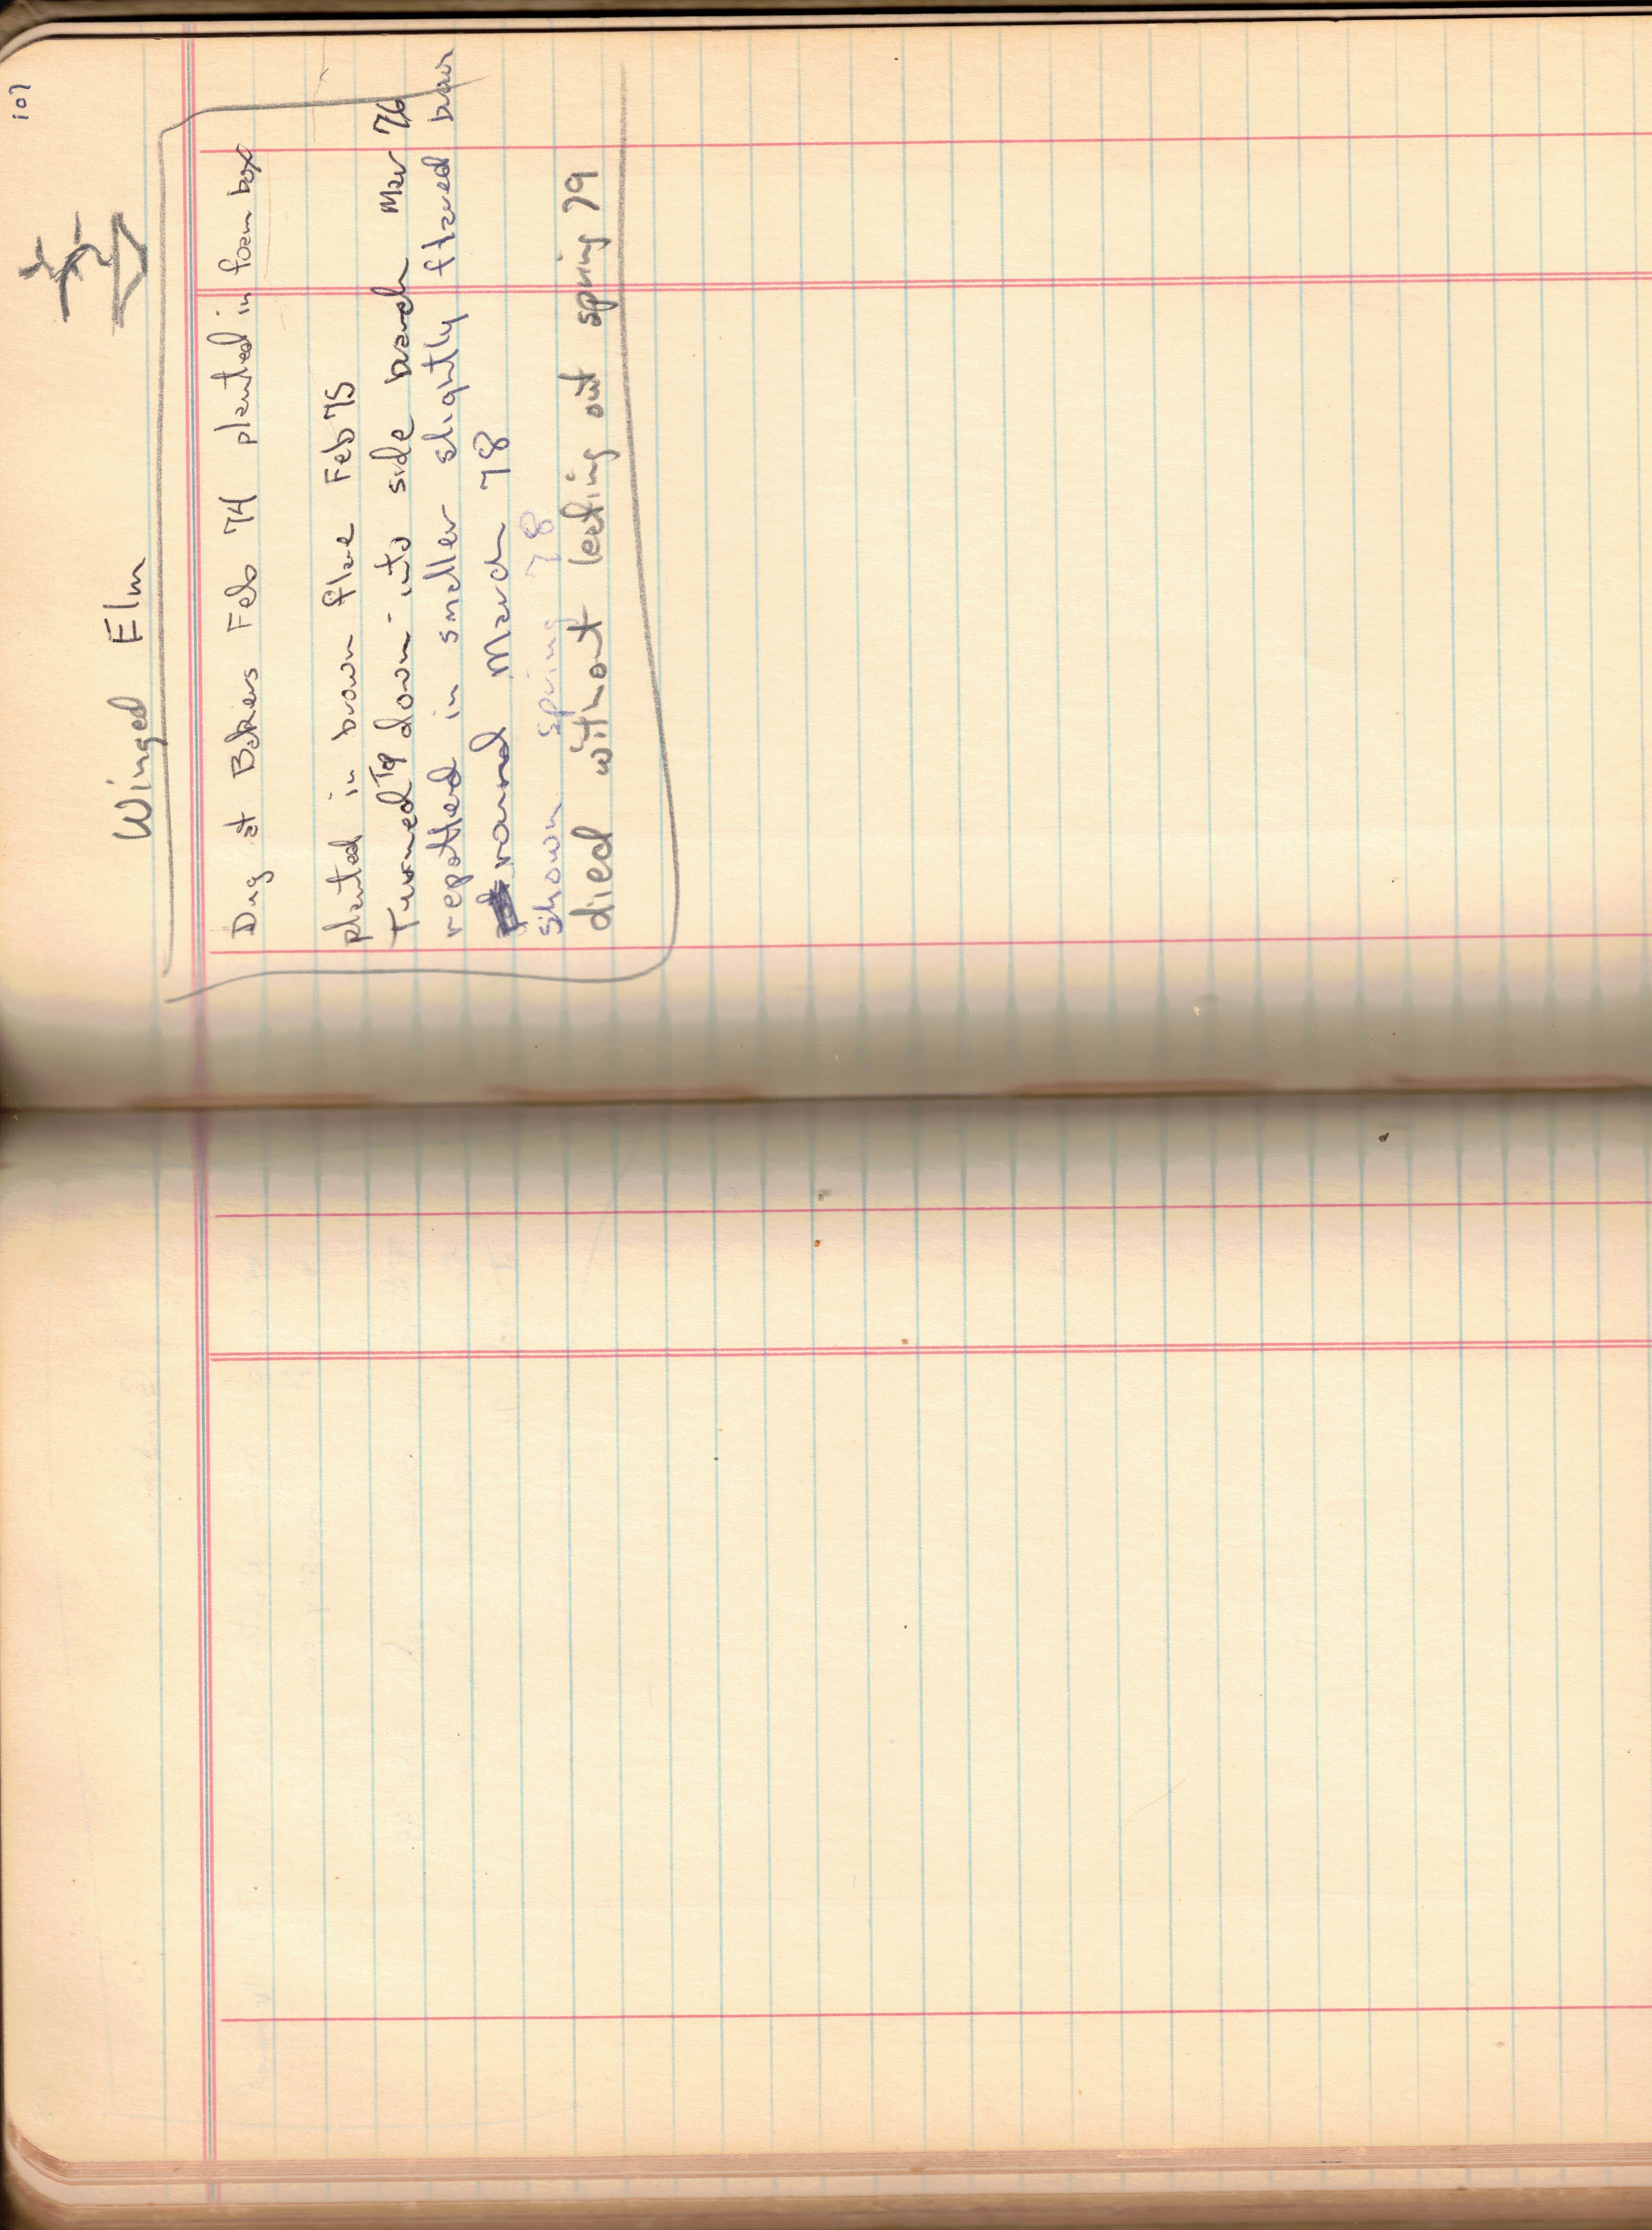 107
Winged Elm
Dug at Bakers Feb 74 planted in foam box
planted in brown flare Feb 75
Turned Top down into side branch Mar 76
repotted in smaller slightly flared
round March 78
shown spring 78
died without leafing out spring 79